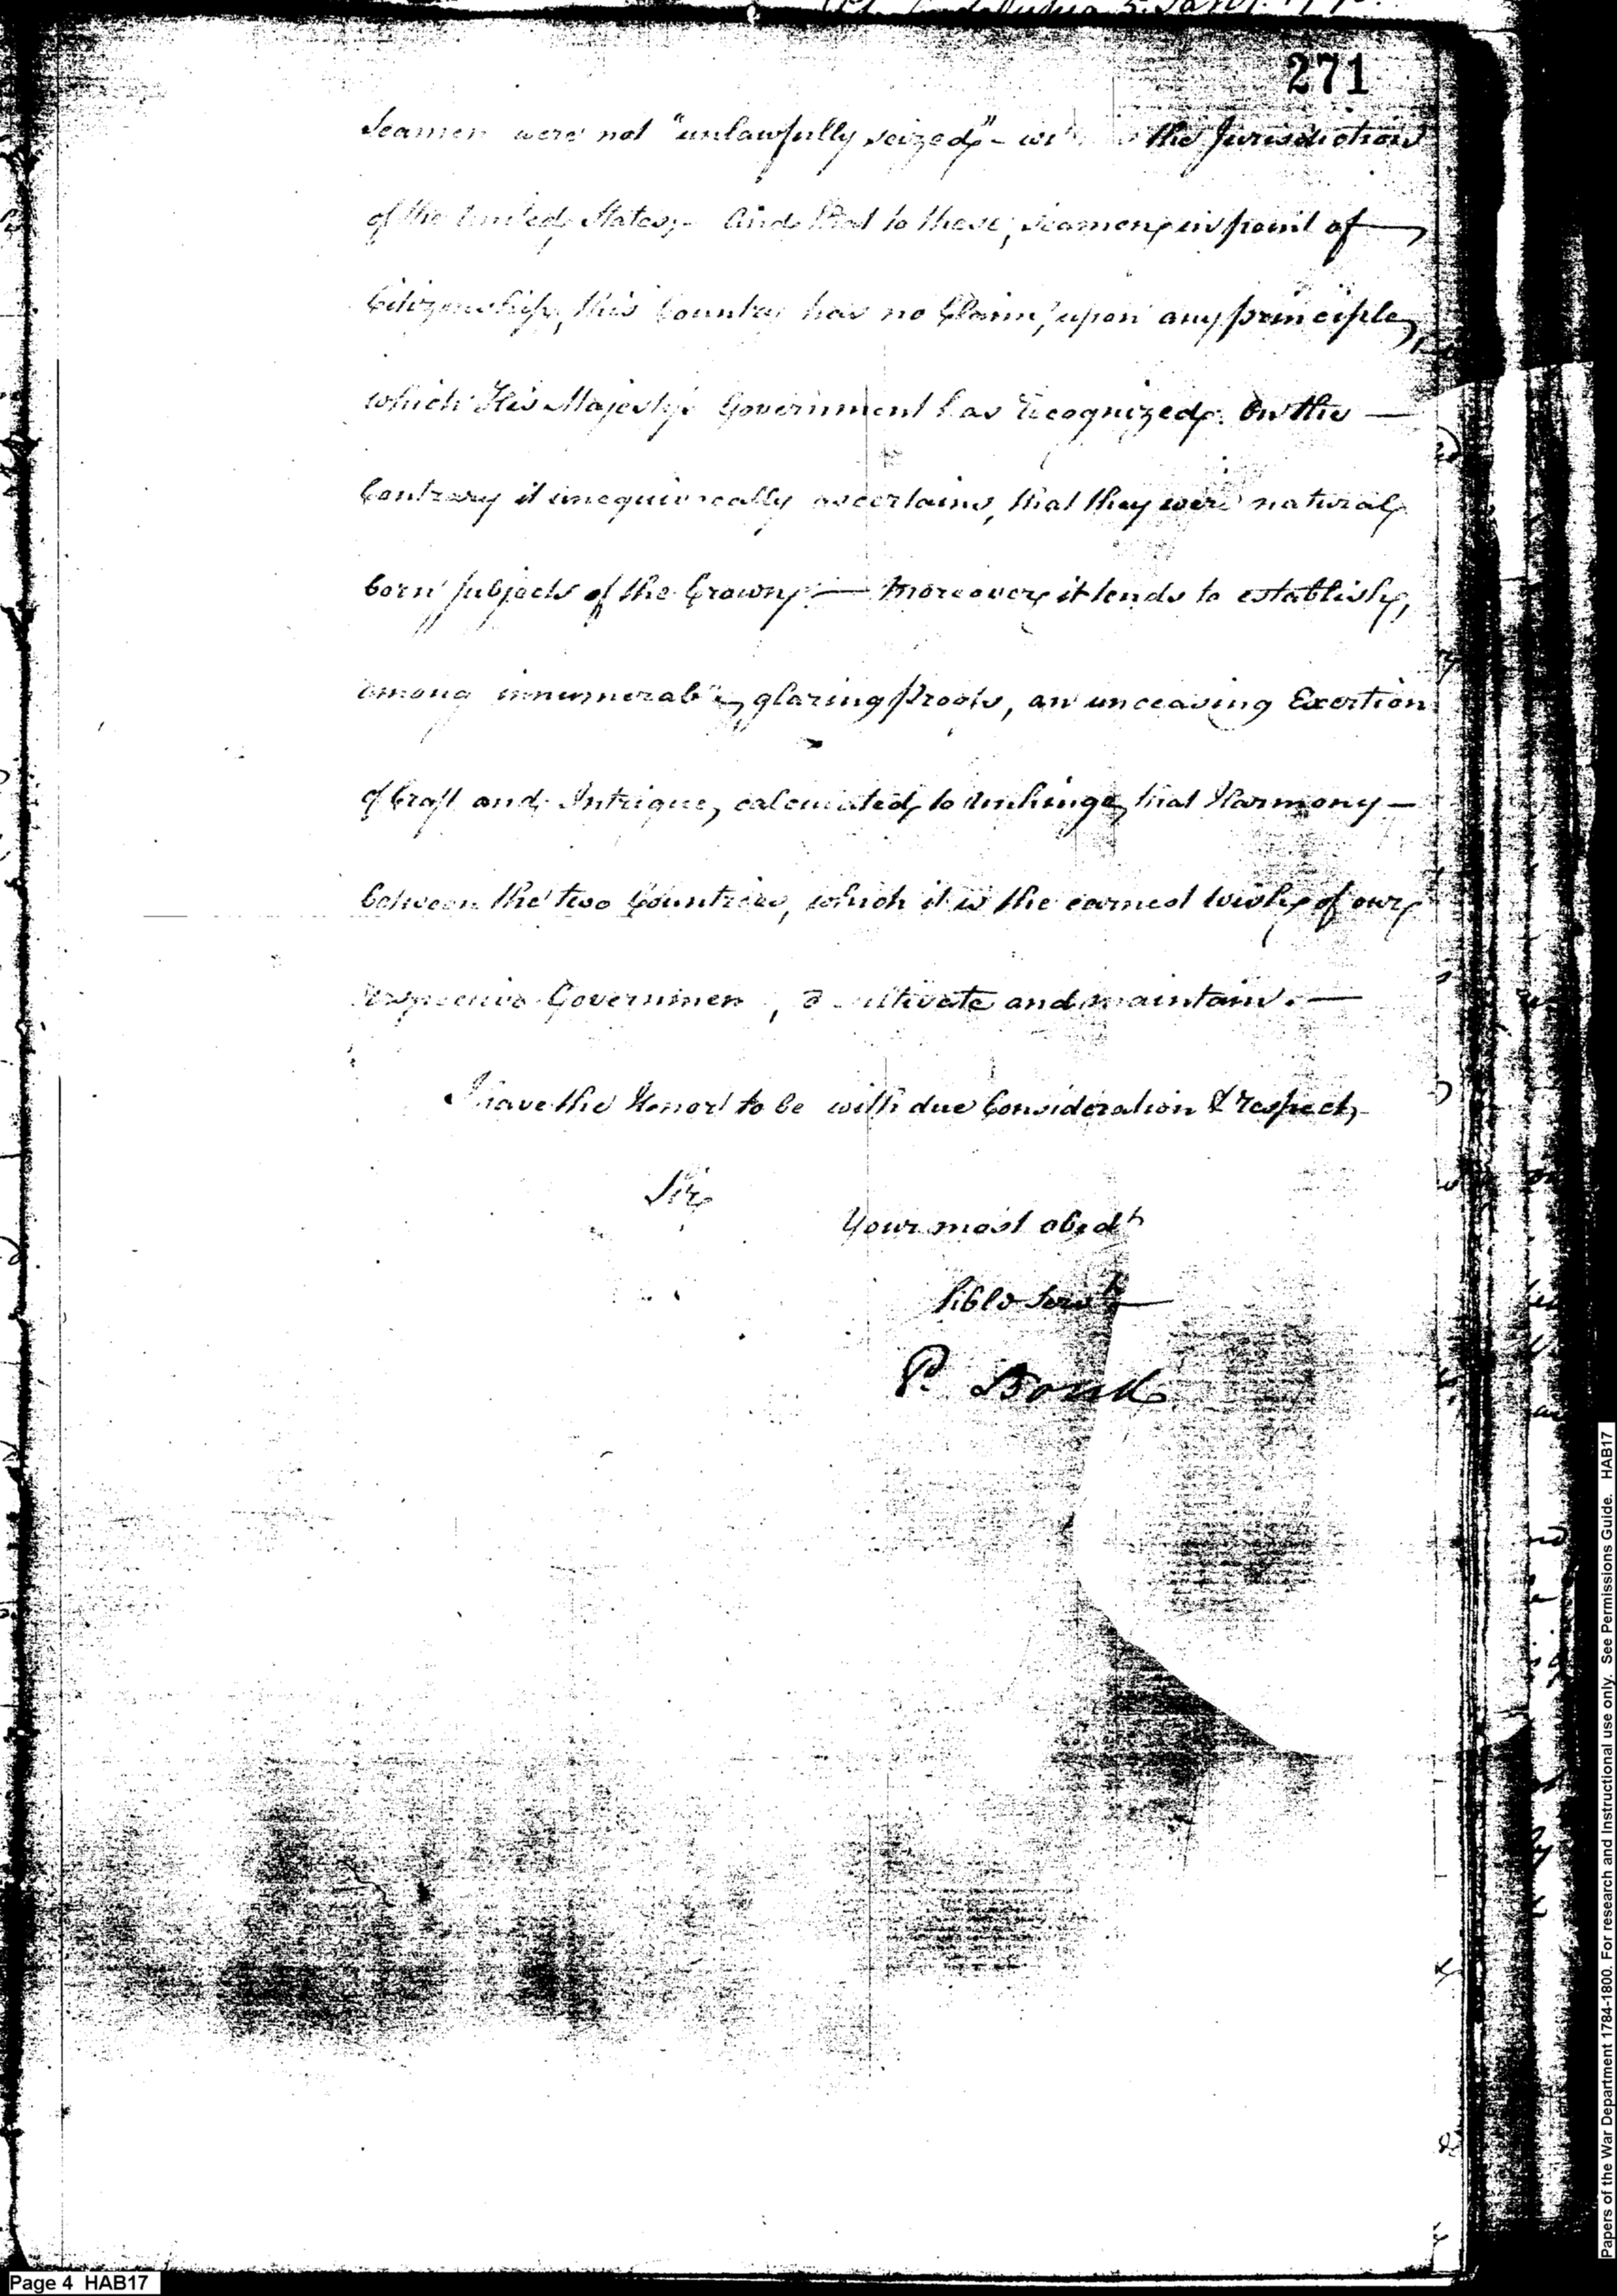 271
Seamen were not "unlawfully seized" - within the Jurisdiction
of the United States; - And that to these, seamen, in point of
Citizenship, this Country has no Claim, upon any principle,
which His Majesty's Government has recognized. On the
Contrary it unequivocally ascertains, that they were natural
born subjects of the Crown: — Moreover it tends to establish,
among innumerable, glaring Proofs, an unceasing Exertion
of Craft and Intrigue, calculated, to unhinge, that Harmony —
between the two Countries, which it is the earnest wish of our
respective Governments, to cultivate and maintain. —
I have the Honor to be with due Consideration & respect,
Sir
Your most obedt
hible Servt
P. Bond
Page 4 HAB17
Papers of the War Department 1784-1800. For research and Instructional use only. See Permissions Guide. HAB17